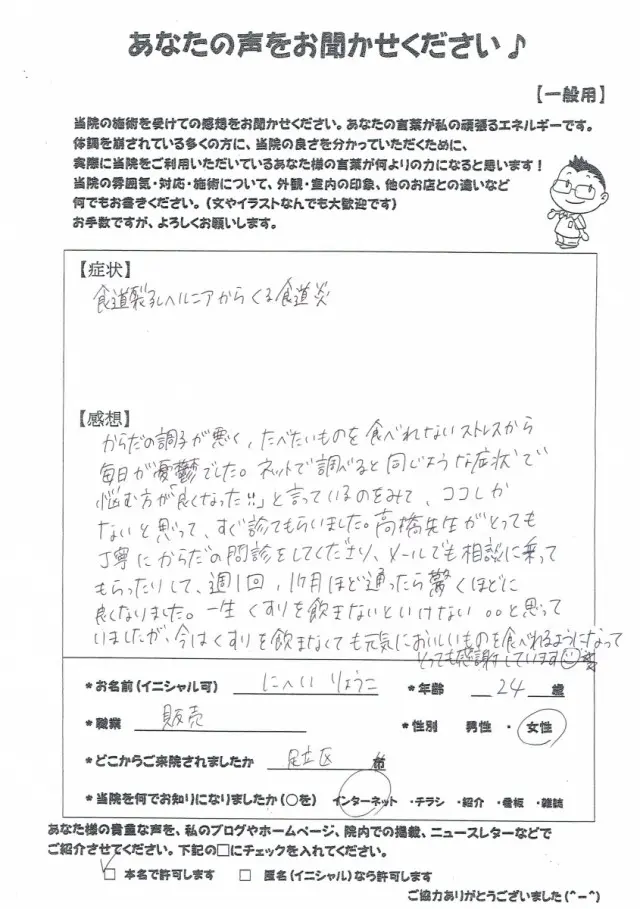 あなたの声をお聞かせください♪
【一般用】
当院の施術を受けての感想をお聞かせください。あなたの言葉が私の頑張るエネルギーです。
体調を崩されている多くの方に、当院の良さを分かっていただくために、
実際に当院をご利用いただいているあなた様の言葉が何よりの力になると思います！
当院の雰囲気・対応・施術について、外観・室内の印象、他のお店との違いなど
何でもお書きください。（文やイラストなんでも大歓迎です）
お手数ですが、よろしくお願いします。
【症状】
食道裂孔ヘルニアからくる食道炎
【感想】
からだの調子が悪く、たべたいものを食べれないストレスから
毎日が憂鬱でした。ネットで調べると同じような症状で
悩む方が「良くなった!!」と言っているのをみて、ココしか
ないと思って、すぐ診てもらいました。高橋先生がとっても
丁寧にからだの問診をしてくださり、メールでも相談に乗って
もらったりして、週1回、1ヶ月ほど通ったら驚くほどに
良くなりました。一生くすりを飲まないといけない。。と思って
いましたが、今はくすりを飲まなくても元気においしいものを食べれるようになって
とっても感謝しています
*お名前(イニシャル可) にへい りょうこ *年齢 24 歳
*職業 販売 *性別 男性 ・ 女性
*どこからご来院されましたか 足立区 様
*当院を何でお知りになりましたか(○を) インターネット ・チラシ ・紹介 ・看板 ・雑誌
あなた様の貴重な声を、私のブログやホームページ、院内での掲載、ニュースレターなどで
ご紹介させてください。下記の□にチェックを入れてください。
□ 本名で許可します □ 匿名(イニシャル)なら許可します
ご協力ありがとうございました(^-^)